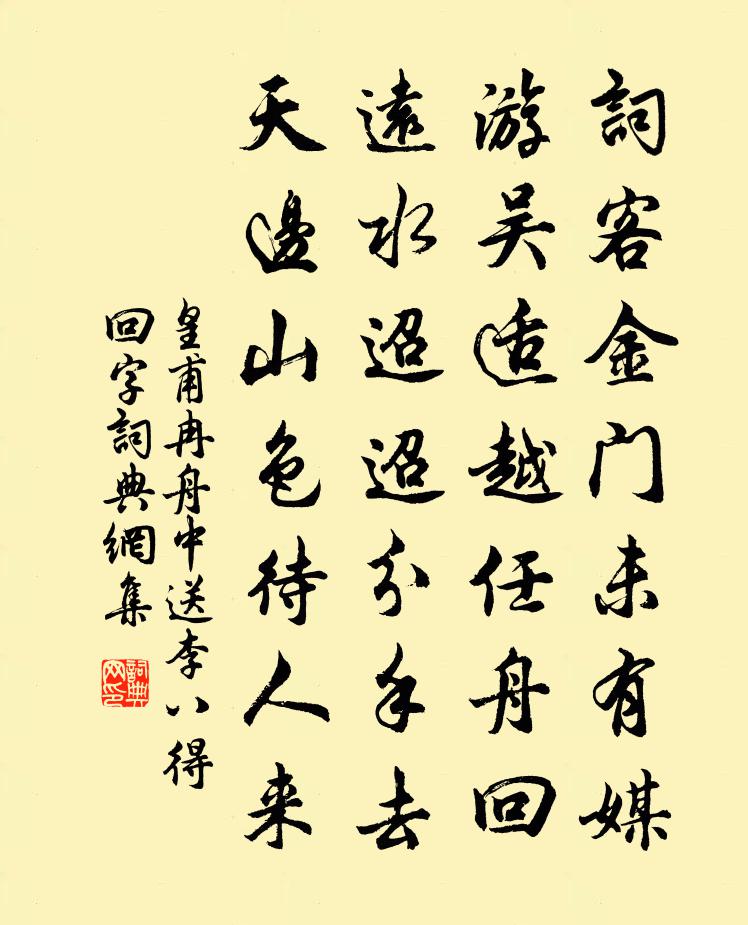 詞客金門未有媒
游吴适越任舟回
遠水迢迢分手去
天邊山色待人来
皇甫冉舟中送李八得
回字詞典網集
詞典
网印